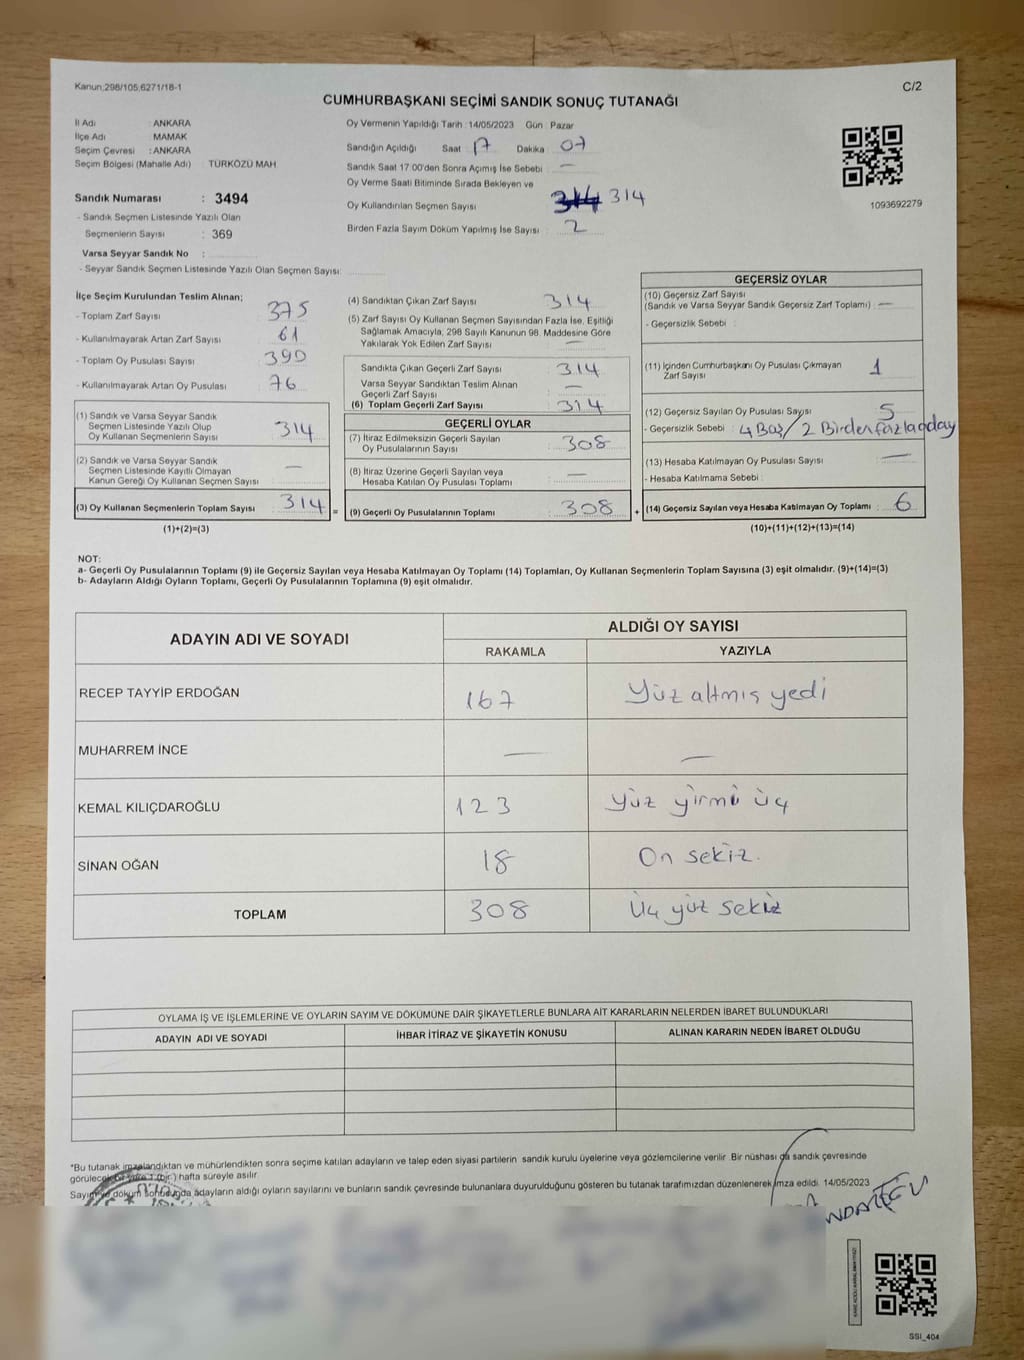 Kanun;298/105,6271/18-1
C/2
CUMHURBAŞKANI SEÇİMİ SANDIK SONUÇ TUTANAĞI
İl Adı : ANKARA
İlçe Adı : MAMAK
Seçim Çevresi : ANKARA
Seçim Bölgesi (Mahalle Adı) TÜRKÖZÜ MAH
Sandık Numarası : 3494
- Sandık Seçmen Listesinde Yazılı Olan
Seçmenlerin Sayısı : 369
Varsa Seyyar Sandık No :
- Seyyar Sandık Seçmen Listesinde Yazılı Olan Seçmen Sayısı:
Oy Vermenin Yapıldığı Tarih :14/05/2023 Gün : Pazar
Sandığın Açıldığı Saat : 17 Dakika : 07
Sandık Saat 17:00'den Sonra Açımış İse Sebebi : —
Oy Verme Saati Bitiminde Sırada Bekleyen ve
Oy Kullandırılan Seçmen Sayısı : 314 314
Birden Fazla Sayım Döküm Yapılmış İse Sayısı : 2
1093692279
İlçe Seçim Kurulundan Teslim Alınan;
- Toplam Zarf Sayısı : 375
- Kullanılmayarak Artan Zarf Sayısı : 61
- Toplam Oy Pusulası Sayısı : 390
- Kullanılmayarak Artan Oy Pusulası : 76
(1) Sandık ve Varsa Seyyar Sandık
Seçmen Listesinde Yazılı Olup
Oy Kullanan Seçmenlerin Sayısı : 314
(2) Sandık ve Varsa Seyyar Sandık
Seçmen Listesinde Kayıtlı Olmayan
Kanun Gereği Oy Kullanan Seçmen Sayısı : —
(3) Oy Kullanan Seçmenlerin Toplam Sayısı : 314 =
(1)+(2)=(3)
(4) Sandıktan Çıkan Zarf Sayısı : 314
(5) Zarf Sayısı Oy Kullanan Seçmen Sayısından Fazla İse, Eşitliği
Sağlamak Amacıyla, 298 Sayılı Kanunun 98. Maddesine Göre
Yakılarak Yok Edilen Zarf Sayısı : —
Sandıkta Çıkan Geçerli Zarf Sayısı : 314
Varsa Seyyar Sandıktan Teslim Alınan
Geçerli Zarf Sayısı : —
(6) Toplam Geçerli Zarf Sayısı : 314
GEÇERLİ OYLAR
(7) İtiraz Edilmeksizin Geçerli Sayılan
Oy Pusulalarının Sayısı : 308
(8) İtiraz Üzerine Geçerli Sayılan veya
Hesaba Katılan Oy Pusulası Toplamı : —
(9) Geçerli Oy Pusulalarının Toplamı : 308 +
GEÇERSİZ OYLAR
(10) Geçersiz Zarf Sayısı
(Sandık ve Varsa Seyyar Sandık Geçersiz Zarf Toplamı) : —
- Geçersizlik Sebebi :
(11) İçinden Cumhurbaşkanı Oy Pusulası Çıkmayan
Zarf Sayısı : 1
(12) Geçersiz Sayılan Oy Pusulası Sayısı : 5
- Geçersizlik Sebebi : 4 Boş / 2 Birden fazla aday
(13) Hesaba Katılmayan Oy Pusulası Sayısı : —
- Hesaba Katılmama Sebebi :
(14) Geçersiz Sayılan veya Hesaba Katılmayan Oy Toplamı : 6
(10)+(11)+(12)+(13)=(14)
NOT:
a- Geçerli Oy Pusulalarının Toplamı (9) ile Geçersiz Sayılan veya Hesaba Katılmayan Oy Toplamı (14) Toplamları, Oy Kullanan Seçmenlerin Toplam Sayısına (3) eşit olmalıdır. (9)+(14)=(3)
b- Adayların Aldığı Oyların Toplamı, Geçerli Oy Pusulalarının Toplamına (9) eşit olmalıdır.
ADAYIN ADI VE SOYADI ALDIĞI OY SAYISI
RAKAMLA YAZIYLA
RECEP TAYYİP ERDOĞAN 167 Yüz altmış yedi
MUHARREM İNCE — —
KEMAL KILIÇDAROĞLU 123 Yüz yirmi üç
SİNAN OĞAN 18 On sekiz.
TOPLAM 308 Üç yüz sekiz
OYLAMA İŞ VE İŞLEMLERİNE VE OYLARIN SAYIM VE DÖKÜMÜNE DAİR ŞİKAYETLERLE BUNLARA AİT KARARLARIN NELERDEN İBARET BULUNDUKLARI
ADAYIN ADI VE SOYADI İHBAR İTİRAZ VE ŞİKAYETİN KONUSU ALINAN KARARIN NEDEN İBARET OLDUĞU
*Bu tutanak imzalandıktan ve mühürlendikten sonra seçime katılan adayların ve talep eden siyasi partilerin sandık kurulu üyelerine veya gözlemcilerine verilir. Bir nüshası da sandık çevresinde
görülecek bir yere 1 (bir) hafta süreyle asılır.
Sayım ve döküm sonucunda adayların aldığı oyların sayılarını ve bunların sandık çevresinde bulunanlara duyurulduğunu gösteren bu tutanak tarafımızdan düzenlenerek imza edildi. 14/05/2023
SSI_404